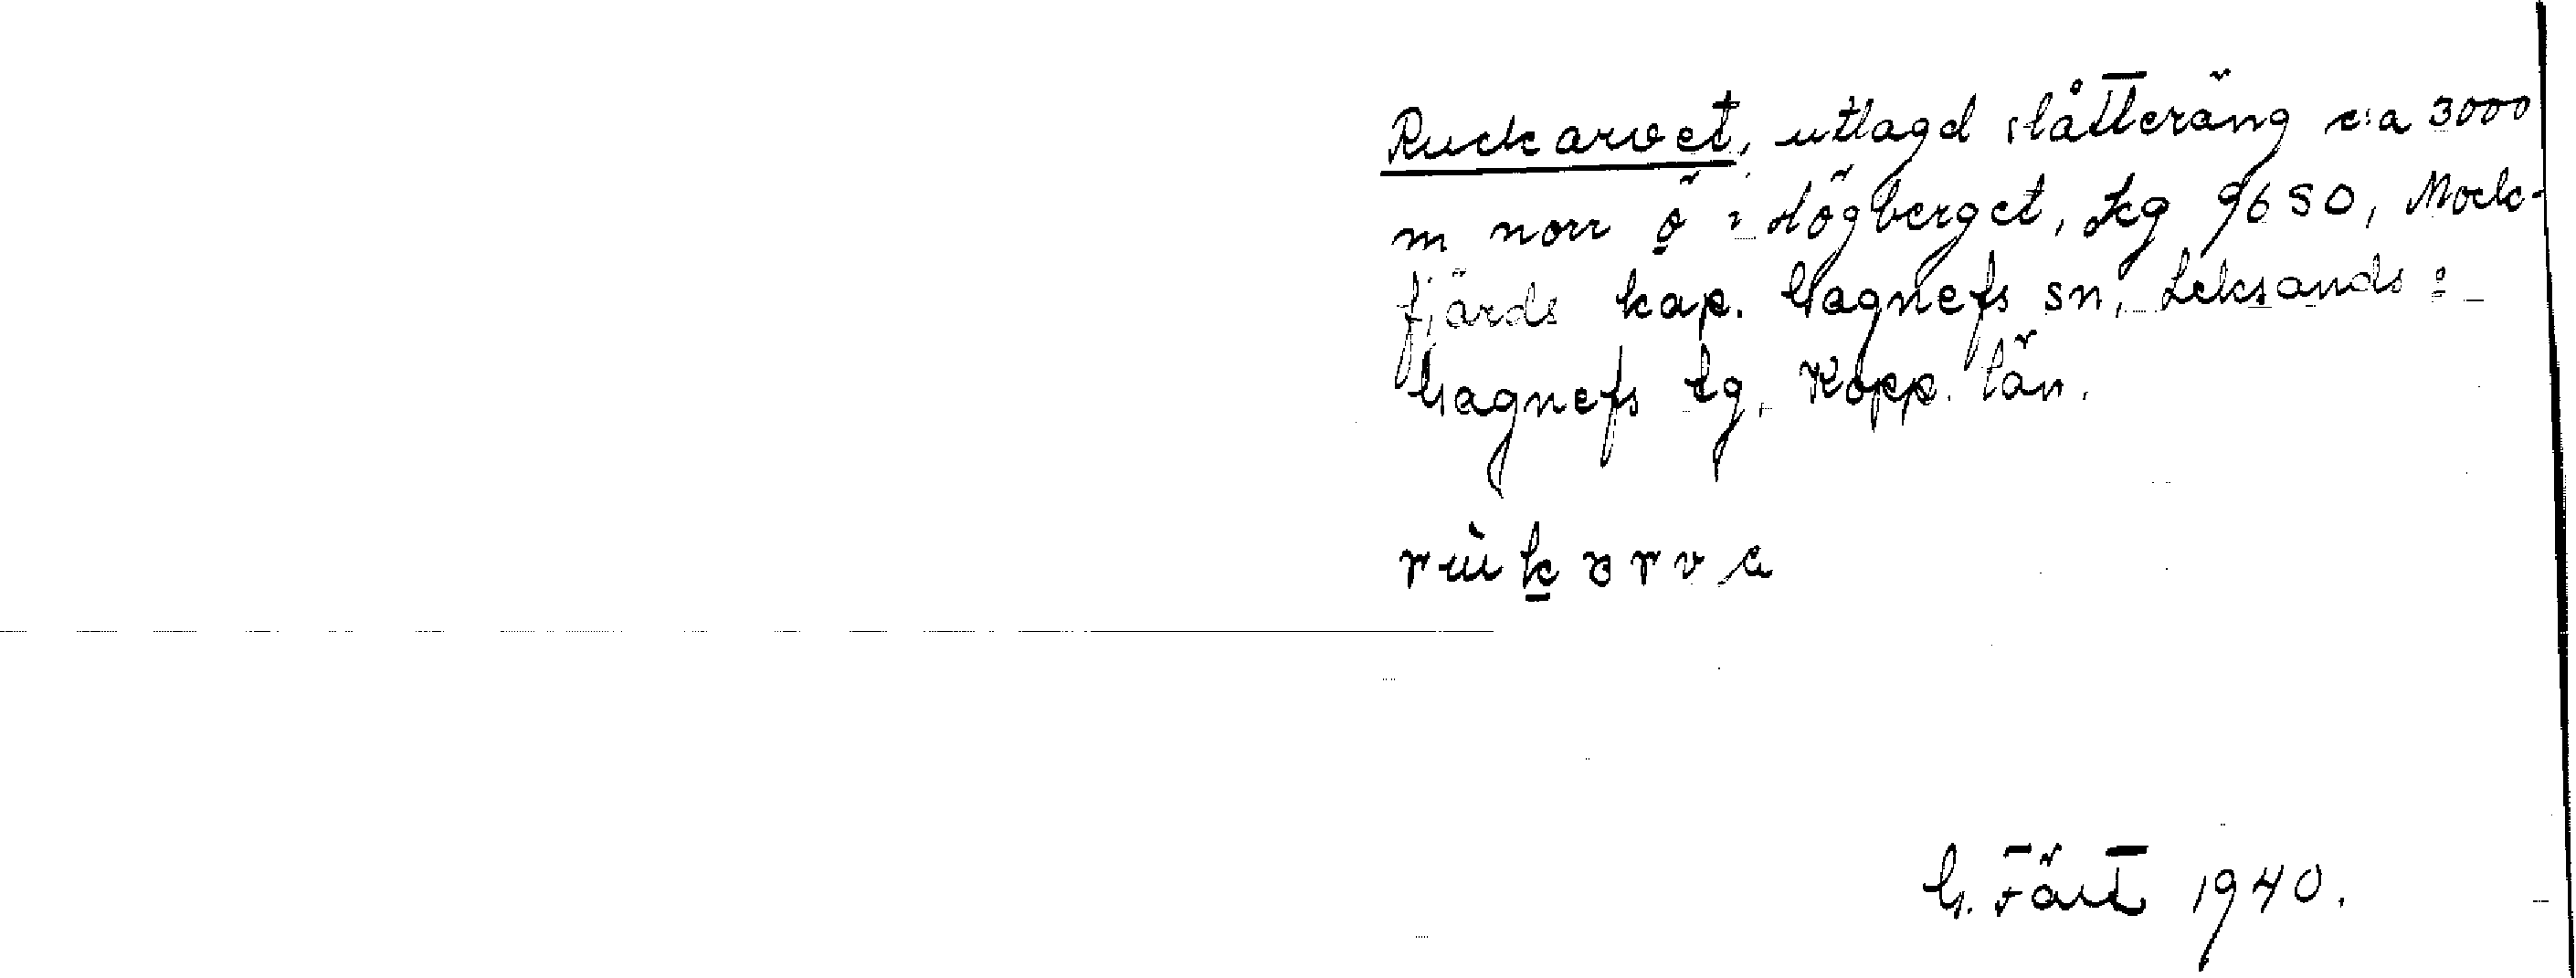 Ruckarvet, utlagd slåtteräng c:a 3000
m norr ö i Högberget, kg 9650, Mock-
fjärds kap. Gagnefs sn, Leksands o
Gagnefs tg, Kopp. län.
rùkarva
G. 1940.